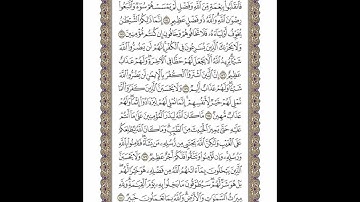 فَٱنقَلَبُواْ بِنِعۡمَةٖ مِّنَ ٱللَّهِ وَفَضۡلٖ لَّمۡ يَمۡسَسۡهُمۡ سُوٓءٞ وَٱتَّبَعُواْ
رِضۡوَٰنَ ٱللَّهِۗ وَٱللَّهُ ذُو فَضۡلٍ عَظِيمٍ ١٧٤ إِنَّمَا ذَٰلِكُمُ ٱلشَّيۡطَٰنُ
يُخَوِّفُ أَوۡلِيَآءَهُۥ فَلَا تَخَافُوهُمۡ وَخَافُونِ إِن كُنتُم مُّؤۡمِنِينَ ١٧٥
وَلَا يَحۡزُنكَ ٱلَّذِينَ يُسَٰرِعُونَ فِي ٱلۡكُفۡرِۚ إِنَّهُمۡ لَن يَضُرُّواْ ٱللَّهَ
شَيۡـٔٗاۗ يُرِيدُ ٱللَّهُ أَلَّا يَجۡعَلَ لَهُمۡ حَظّٗا فِي ٱلۡأٓخِرَةِۖ وَلَهُمۡ عَذَابٌ
عَظِيمٌ ١٧٦ إِنَّ ٱلَّذِينَ ٱشۡتَرَوُاْ ٱلۡكُفۡرَ بِٱلۡإِيمَٰنِ لَن يَضُرُّواْ ٱللَّهَ
شَيۡـٔٗاۖ وَلَهُمۡ عَذَابٌ أَلِيمٞ ١٧٧ وَلَا يَحۡسَبَنَّ ٱلَّذِينَ كَفَرُوٓاْ أَنَّمَا
نُمۡلِي لَهُمۡ خَيۡرٞ لِّأَنفُسِهِمۡۚ إِنَّمَا نُمۡلِي لَهُمۡ لِيَزۡدَادُوٓاْ إِثۡمٗاۖ وَلَهُمۡ
عَذَابٞ مُّهِينٞ ١٧٨ مَّا كَانَ ٱللَّهُ لِيَذَرَ ٱلۡمُؤۡمِنِينَ عَلَىٰ مَآ أَنتُمۡ
عَلَيۡهِ حَتَّىٰ يَمِيزَ ٱلۡخَبِيثَ مِنَ ٱلطَّيِّبِۗ وَمَا كَانَ ٱللَّهُ لِيُطۡلِعَكُمۡ
عَلَى ٱلۡغَيۡبِ وَلَٰكِنَّ ٱللَّهَ يَجۡتَبِي مِن رُّسُلِهِۦ مَن يَشَآءُۖ فَـَٔامِنُواْ بِٱللَّهِ
وَرُسُلِهِۦۚ وَإِن تُؤۡمِنُواْ وَتَتَّقُواْ فَلَكُمۡ أَجۡرٌ عَظِيمٞ ١٧٩ وَلَا يَحۡسَبَنَّ
ٱلَّذِينَ يَبۡخَلُونَ بِمَآ ءَاتَىٰهُمُ ٱللَّهُ مِن فَضۡلِهِۦ هُوَ خَيۡرٗا لَّهُمۖ
بَلۡ هُوَ شَرّٞ لَّهُمۡۖ سَيُطَوَّقُونَ مَا بَخِلُواْ بِهِۦ يَوۡمَ ٱلۡقِيَٰمَةِۗ وَلِلَّهِ
مِيرَٰثُ ٱلسَّمَٰوَٰتِ وَٱلۡأَرۡضِۗ وَٱللَّهُ بِمَا تَعۡمَلُونَ خَبِيرٞ ١٨٠